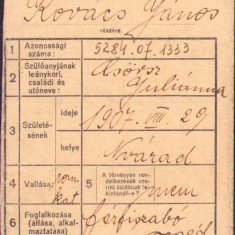 Kovács János
részére
1 Azonossági száma: 5284.07.1333
2 Szülőanyjának leánykori, családi és utóneve: Csörsz Juliánna
3 Születésének
ideje 1907. VIII. 29
helye Nvárad
4 Vallása: róm kat
5 A törvényes rendelkezések szerint zsidónak tekintendő-e? nem
6 Foglalkozása (állása, alkalmaztatása) férfiszabó